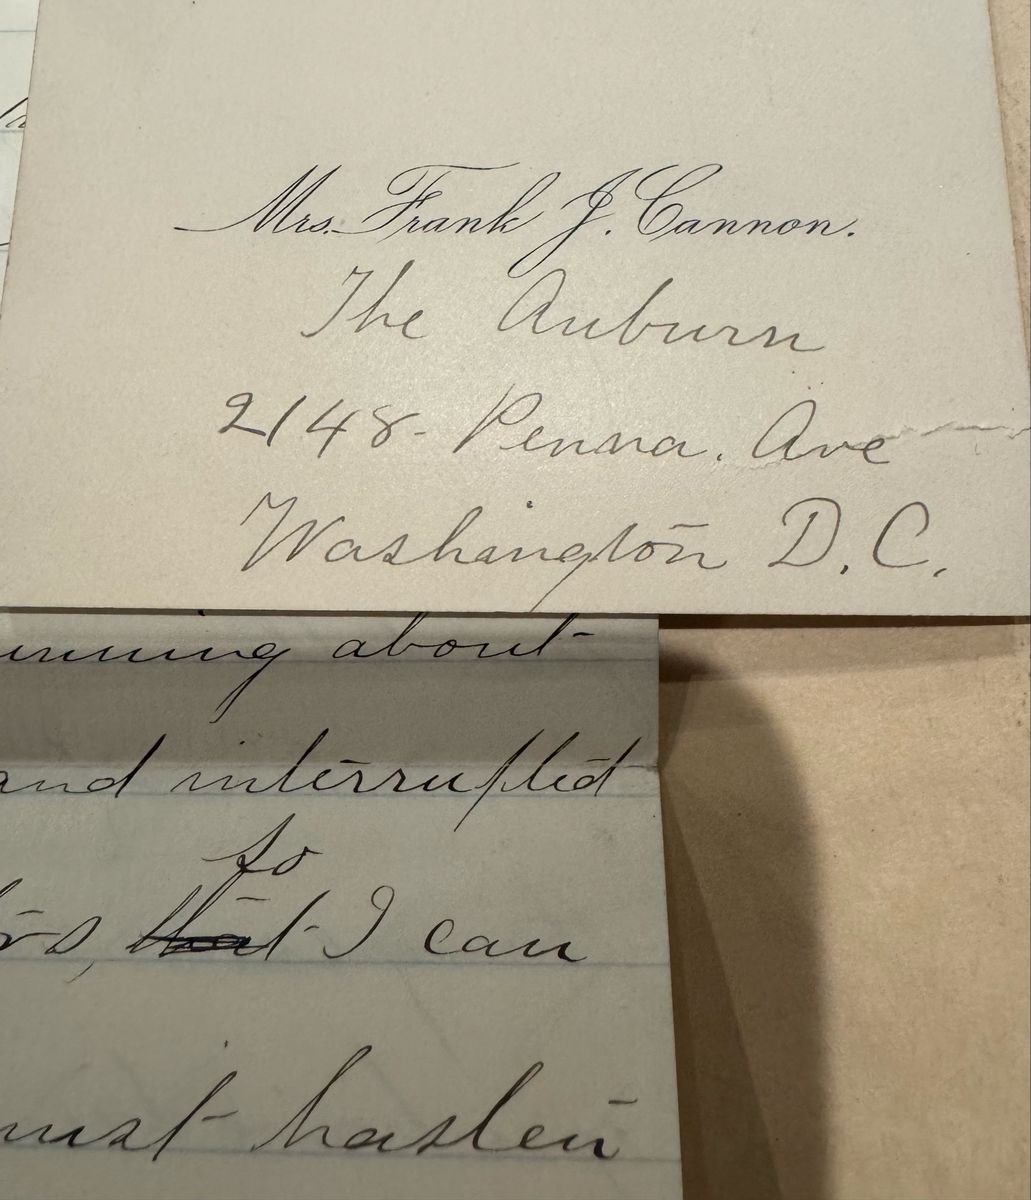 Mrs. Frank J. Cannon.
The Auburn
2148- Penna. Ave
Washington D.C.
about
and interrupted
so
that I can
must hasten